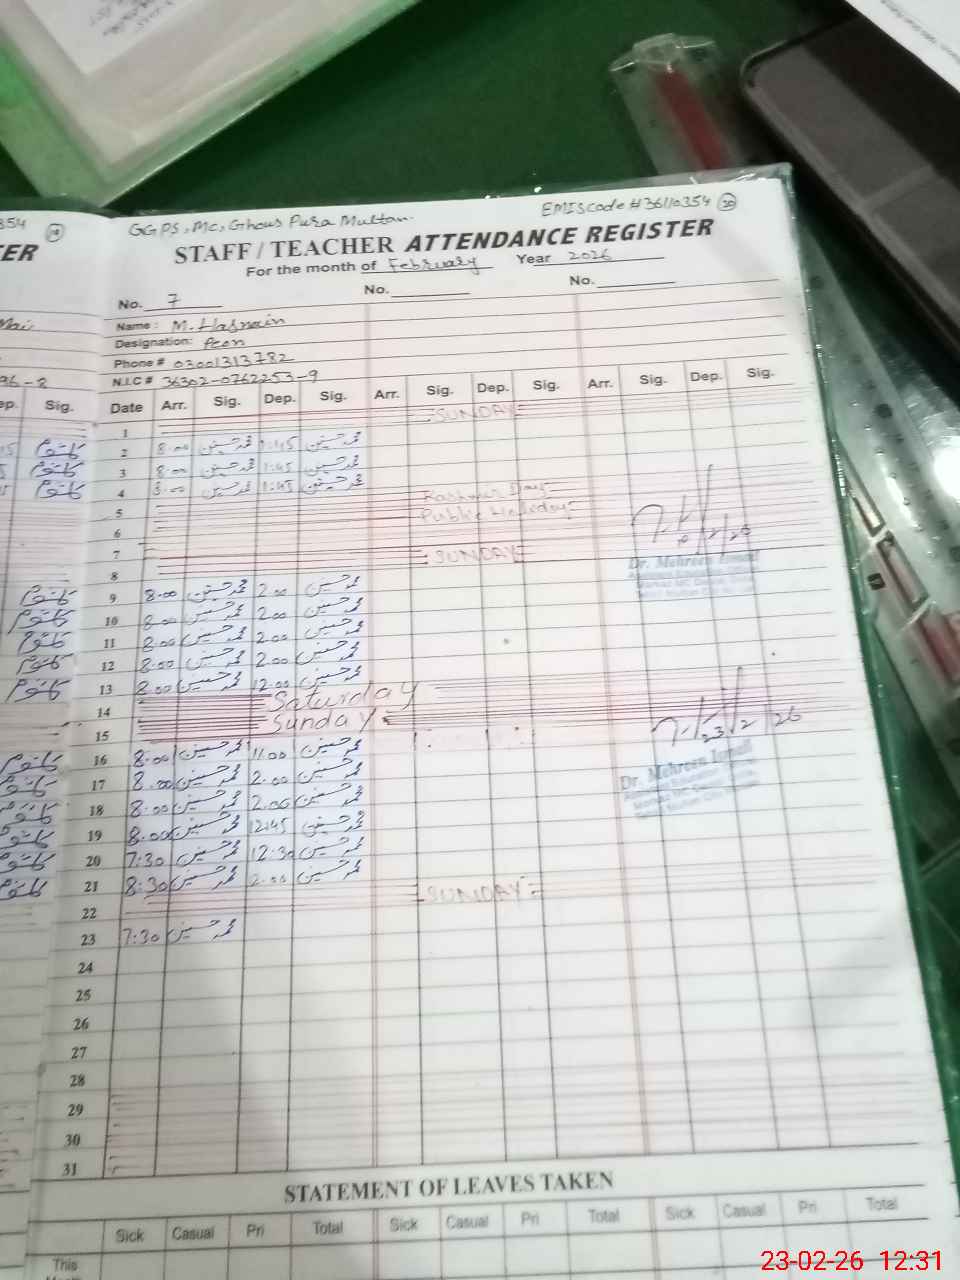 GGPS, MC, Ghous Pura Multan. EMIS code # 36110354 20
STAFF / TEACHER ATTENDANCE REGISTER
For the month of February Year 2026
No. 7 No. No.
Name : M. Hasnain
Designation: Peon
Phone # 03001313782
N.I.C # 36302-0762253-9
Date Arr. Sig. Dep. Sig. Arr. Sig. Dep. Sig. Arr. Sig. Dep. Sig.
1 SUNDAY
2 8.00 محمد حسنین 1:45 محمد حسنین
3 8.00 محمد حسنین 1:45 محمد حسنین
4 8.00 محمد حسنین 1:45 محمد حسنین
5 Kashmir Day
6 Public Holiday
7
8 SUNDAY
9 8.00 محمد حسنین 2.00 محمد حسنین
10 8.00 محمد حسنین 2.00 محمد حسنین
11 8.00 محمد حسنین 2.00 محمد حسنین
12 8.00 محمد حسنین 2.00 محمد حسنین
13 8.00 محمد حسنین 12.00 محمد حسنین
14 Saturday
15 Sunday
16 8.00 محمد حسنین 11.00 محمد حسنین
17 8.00 محمد حسنین 2.00 محمد حسنین
18 8.00 محمد حسنین 2.00 محمد حسنین
19 8.00 محمد حسنین 12:45 محمد حسنین
20 7:30 محمد حسنین 12:30 محمد حسنین
21 8:30 محمد حسنین 2.00 محمد حسنین
22 SUNDAY
23 7:30 محمد حسنین
24
25
26
27
28
29
30
31
Dr. Mehreen Ismail
23/2/26
Dr. Mehreen Ismail
STATEMENT OF LEAVES TAKEN
Sick Casual Pri Total Sick Casual Pri Total Sick Casual Pri Total
This
23-02-26 12:31